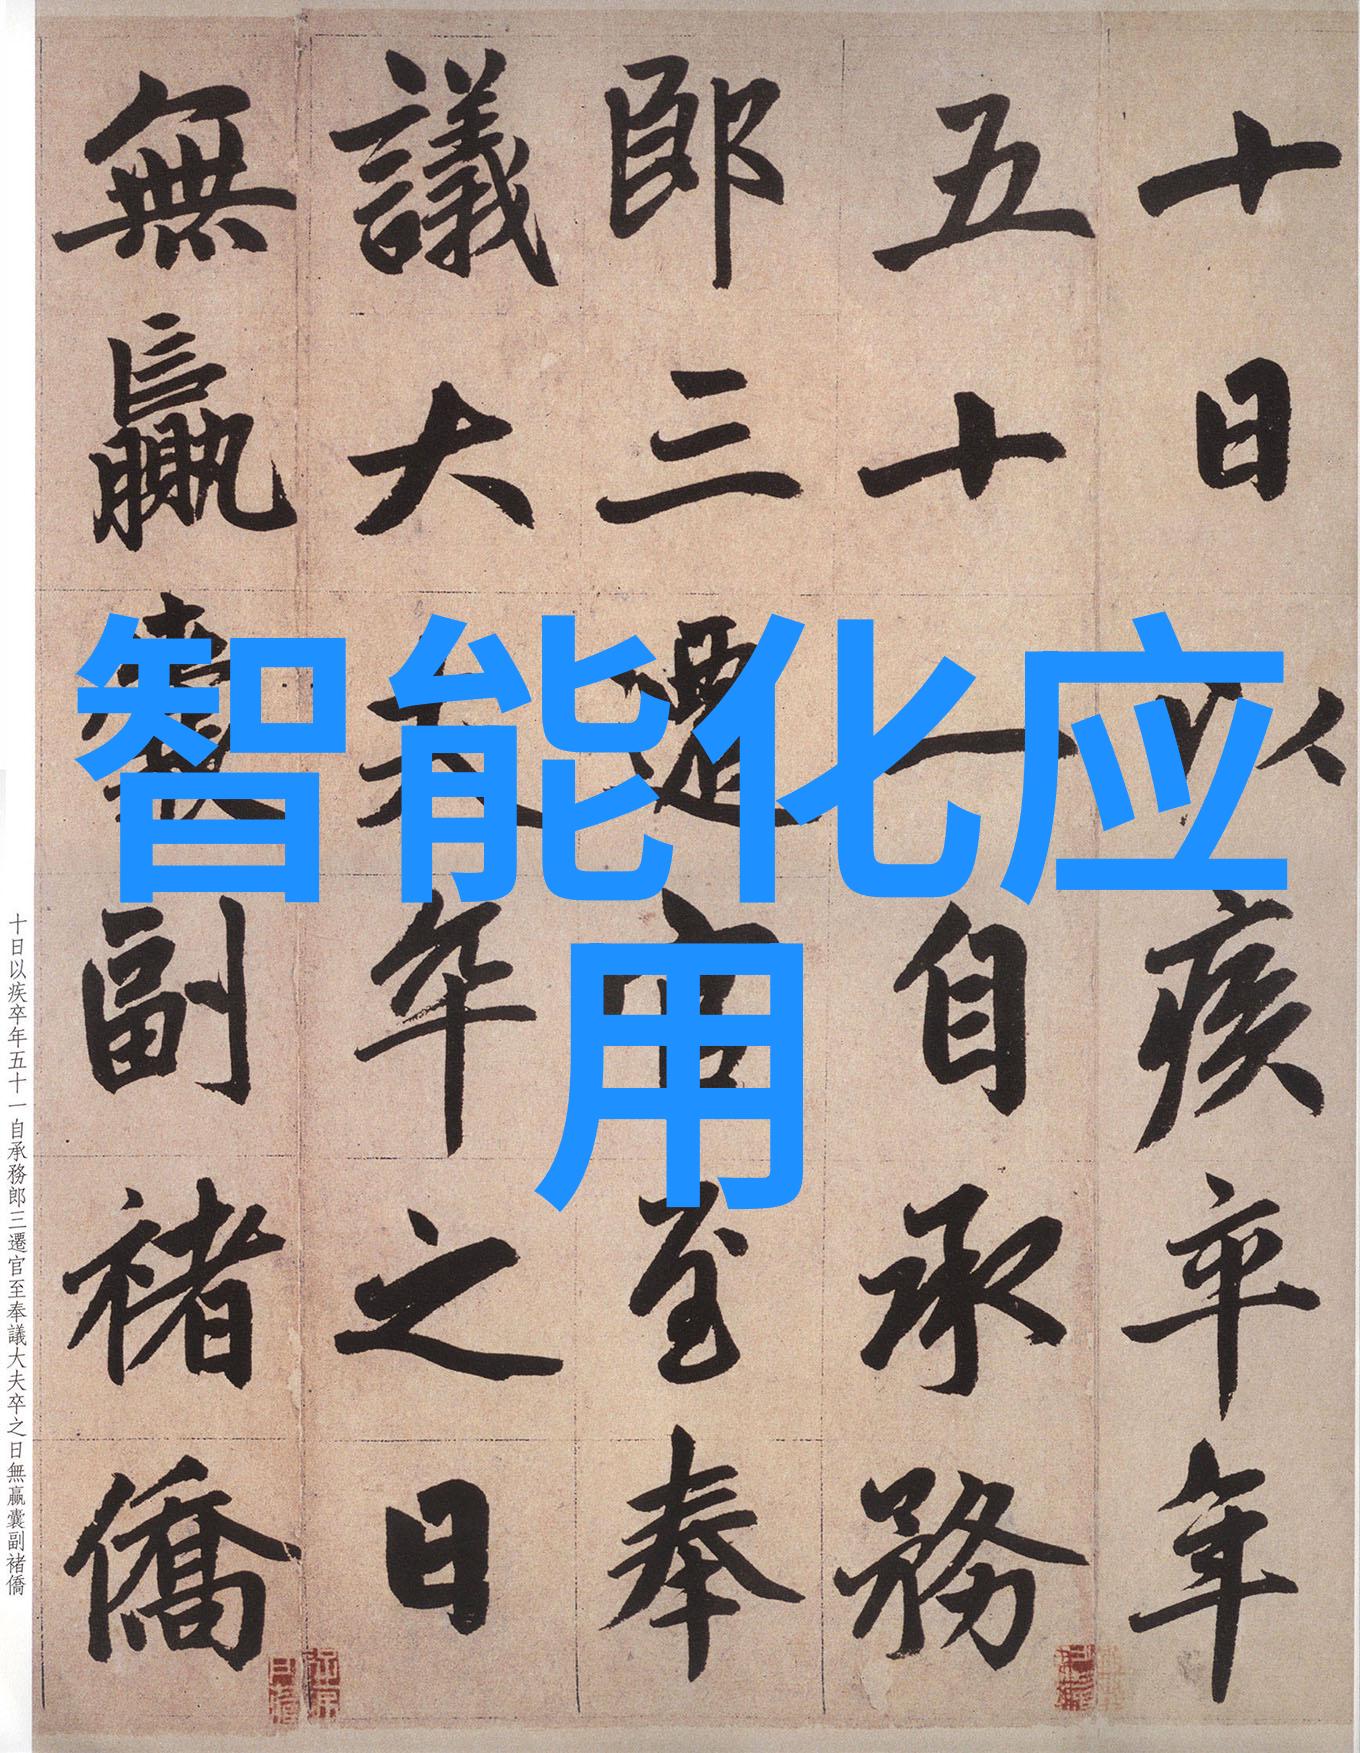 十日以疾卒年
五十一自承務
郎三遷官至奉
議大夫卒之日
無贏囊副褚僑
智能化应
用
十日以疾卒年五十一自承務郎三遷官至奉議大夫卒之日無贏囊副褚僑